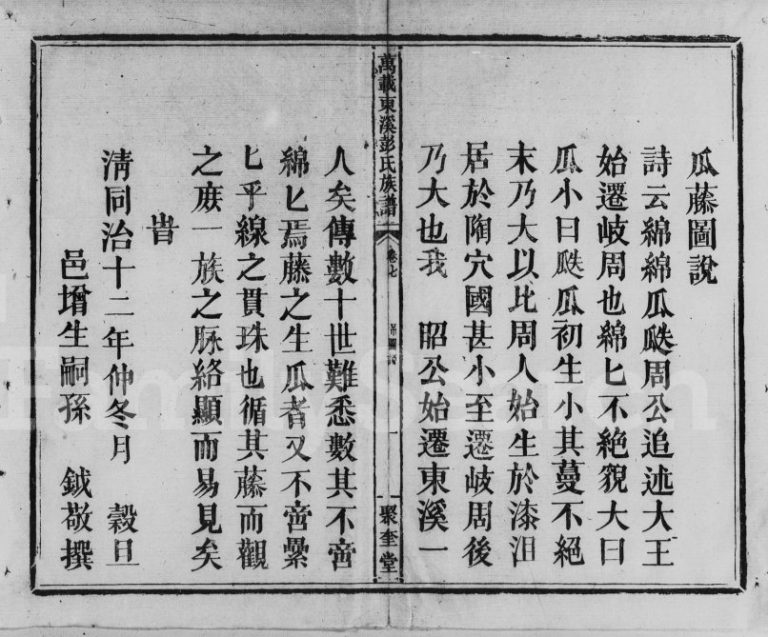 瓜藤圖說
詩云綿綿瓜瓞周公追述大王
始遷岐周也綿匕不絕貌大曰
瓜小曰瓞瓜初生小其蔓不絕
末乃大以比周人始生於漆沮
居於陶穴國甚小至遷岐周後
乃大也我 昭公始遷東溪一
萬載東溪彭氏族譜 卷七 一 聚奎堂
人矣傳數十世難悉數其不啻
綿匕焉藤之生瓜者又不啻纍
匕乎線之貫珠也循其藤而觀
之庶一族之脉絡顯而易見矣
旹
清同治十二年仲冬月 穀旦
邑增生嗣孫 鉞敬撰
FamilySearch